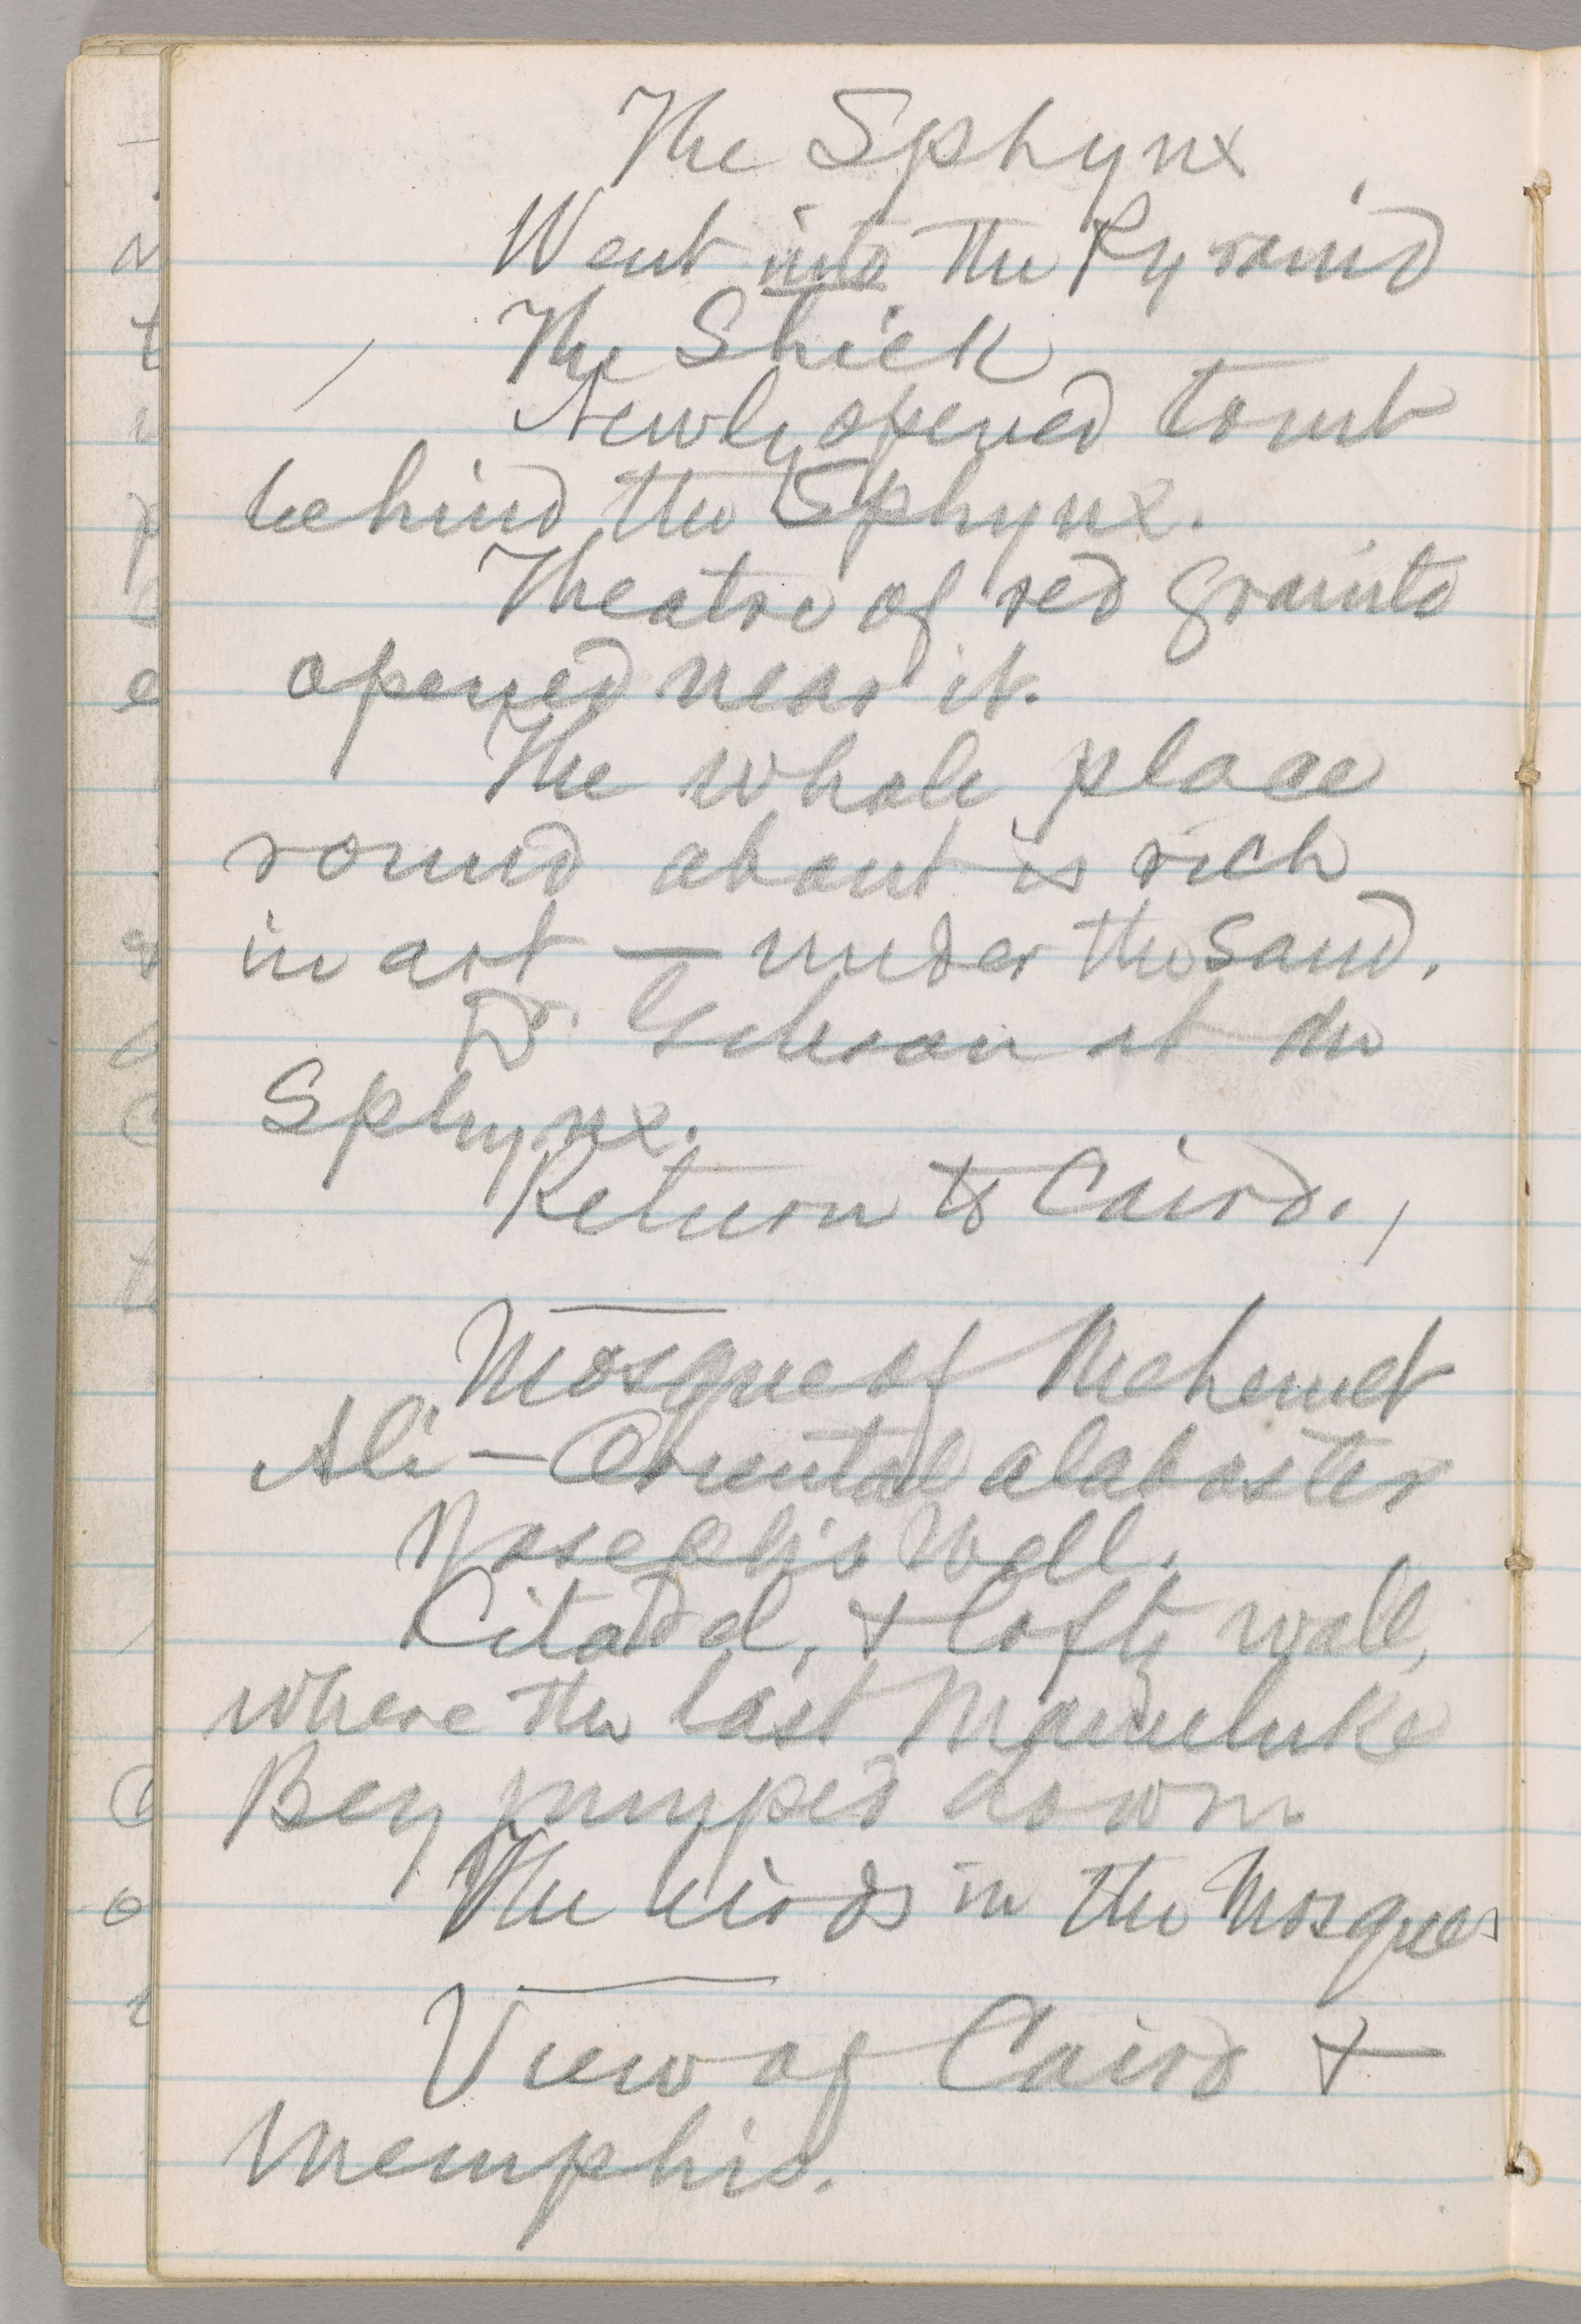 The Sphynx
Went into the Pyramid
The Shiek
Newly opened tomb
behind the Sphynx.
Theatre of red granite
opened near it.
The whole place
round about is rich
in art — under the sand.
Dr. Gibson at the
Sphynx.
Return to Cairo.
Mosque of Mehemet
Ali — Oriental alabaster
Joseph's Well.
Citadel, & lofty wall,
where the last Mameluke
Bey jumped down.
The birds in the Mosques
View of Cairo &
Memphis.